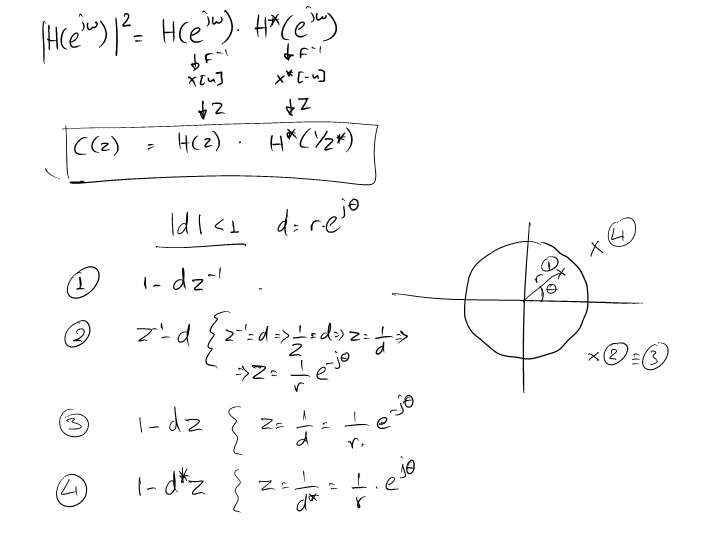 |H(e^{jω})|² = H(e^{jω}) · H*(e^{jω})
↓F⁻¹ ↓F⁻¹
x[n] x*[-n]
↓Z ↓Z
C(z) = H(z) · H*(1/z*)
|d| < 1 d = r·e^{jθ}
① 1 - dz⁻¹ .
② z⁻¹ - d { z⁻¹ = d => 1/z = d => z = 1/d =>
=> z = 1/r e^{-jθ}
③ 1 - dz { z = 1/d = 1/r. e^{-jθ}
④ 1 - d*z { z = 1/d* = 1/r · e^{jθ}
x ④
r ① x
θ
x ② ≡ ③